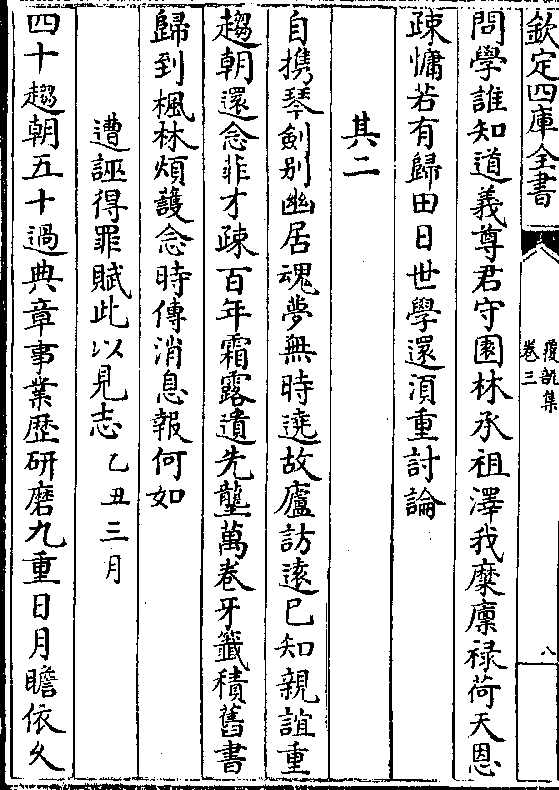 欽定四庫全書
覆瓿集
卷三
八
問學誰知道義尊君守園林承祖澤我糜廪禄荷天恩
疎慵若有歸田日世學還湏重討論
其二
自携琴劍别幽居魂夢無時遶故廬訪逺已知親誼重
趨朝還念菲才疎百年霜露遺先壟萬卷牙籤積舊書
歸到楓林煩護念時傳消息報何如
遭誣得罪賦此以見志乙丑三月
四十趨朝五十過典章事業歴研磨九重日月瞻依久